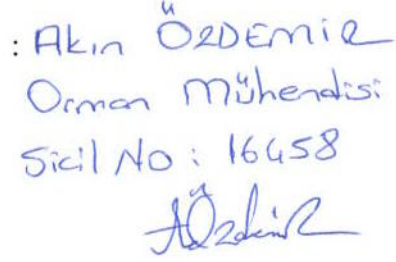 : Akın ÖZDEMİR
Orman Mühendisi
Sicil No : 16458
AÖzdemir